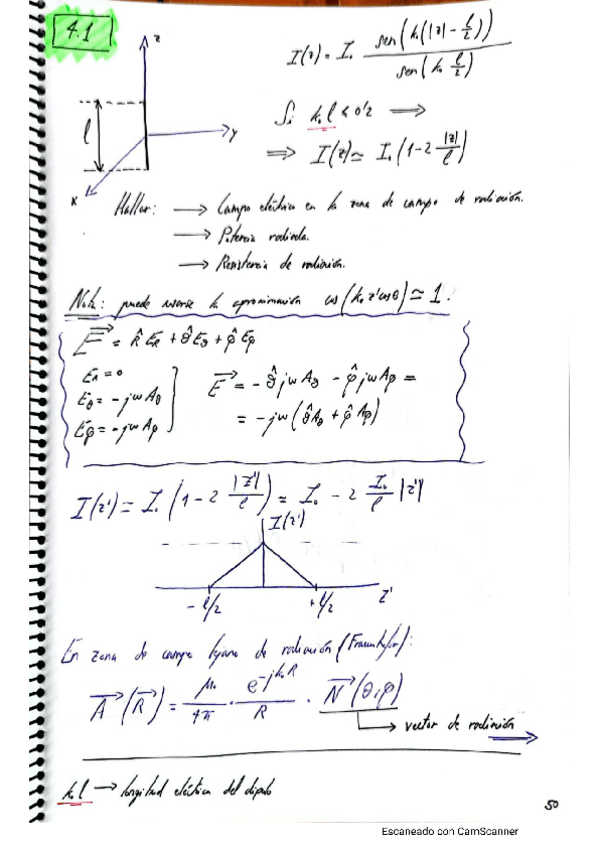 4.1
z
I(z) = I₀ sen(k₀(|z| - l/2)) / sen(k₀ l/2)
l
y
x
Si k₀l < 0'2 ⟹
⟹ I(z) ≃ I₀(1-2 |z|/l)
Hallar: → Campo eléctrico en la zona de campo de radiación.
→ Potencia radiada.
→ Resistencia de radiación.
Nota: puede usarse la aproximación cos(k₀z'cosθ) ≃ 1.
E⃗ = R̂ E_R + θ̂ E_θ + φ̂ E_φ
E_R = 0
E_θ = -jωA_θ
E_φ = -jωA_φ
E⃗ = -θ̂ jωA_θ - φ̂ jωA_φ =
= -jω(θ̂A_θ + φ̂A_φ)
I(z') = I₀(1-2 |z'|/l) = I₀ - 2 I₀/l |z'|
I(z')
-l/2
+l/2
z'
En zona de campo lejano de radiación (Fraunhofer):
A⃗(R⃗) = μ₀/4π · e^(-jk₀R)/R · N⃗(θ,φ)
→ vector de radiación
k₀l → longitud eléctrica del dipolo
50
Escaneado con CamScanner